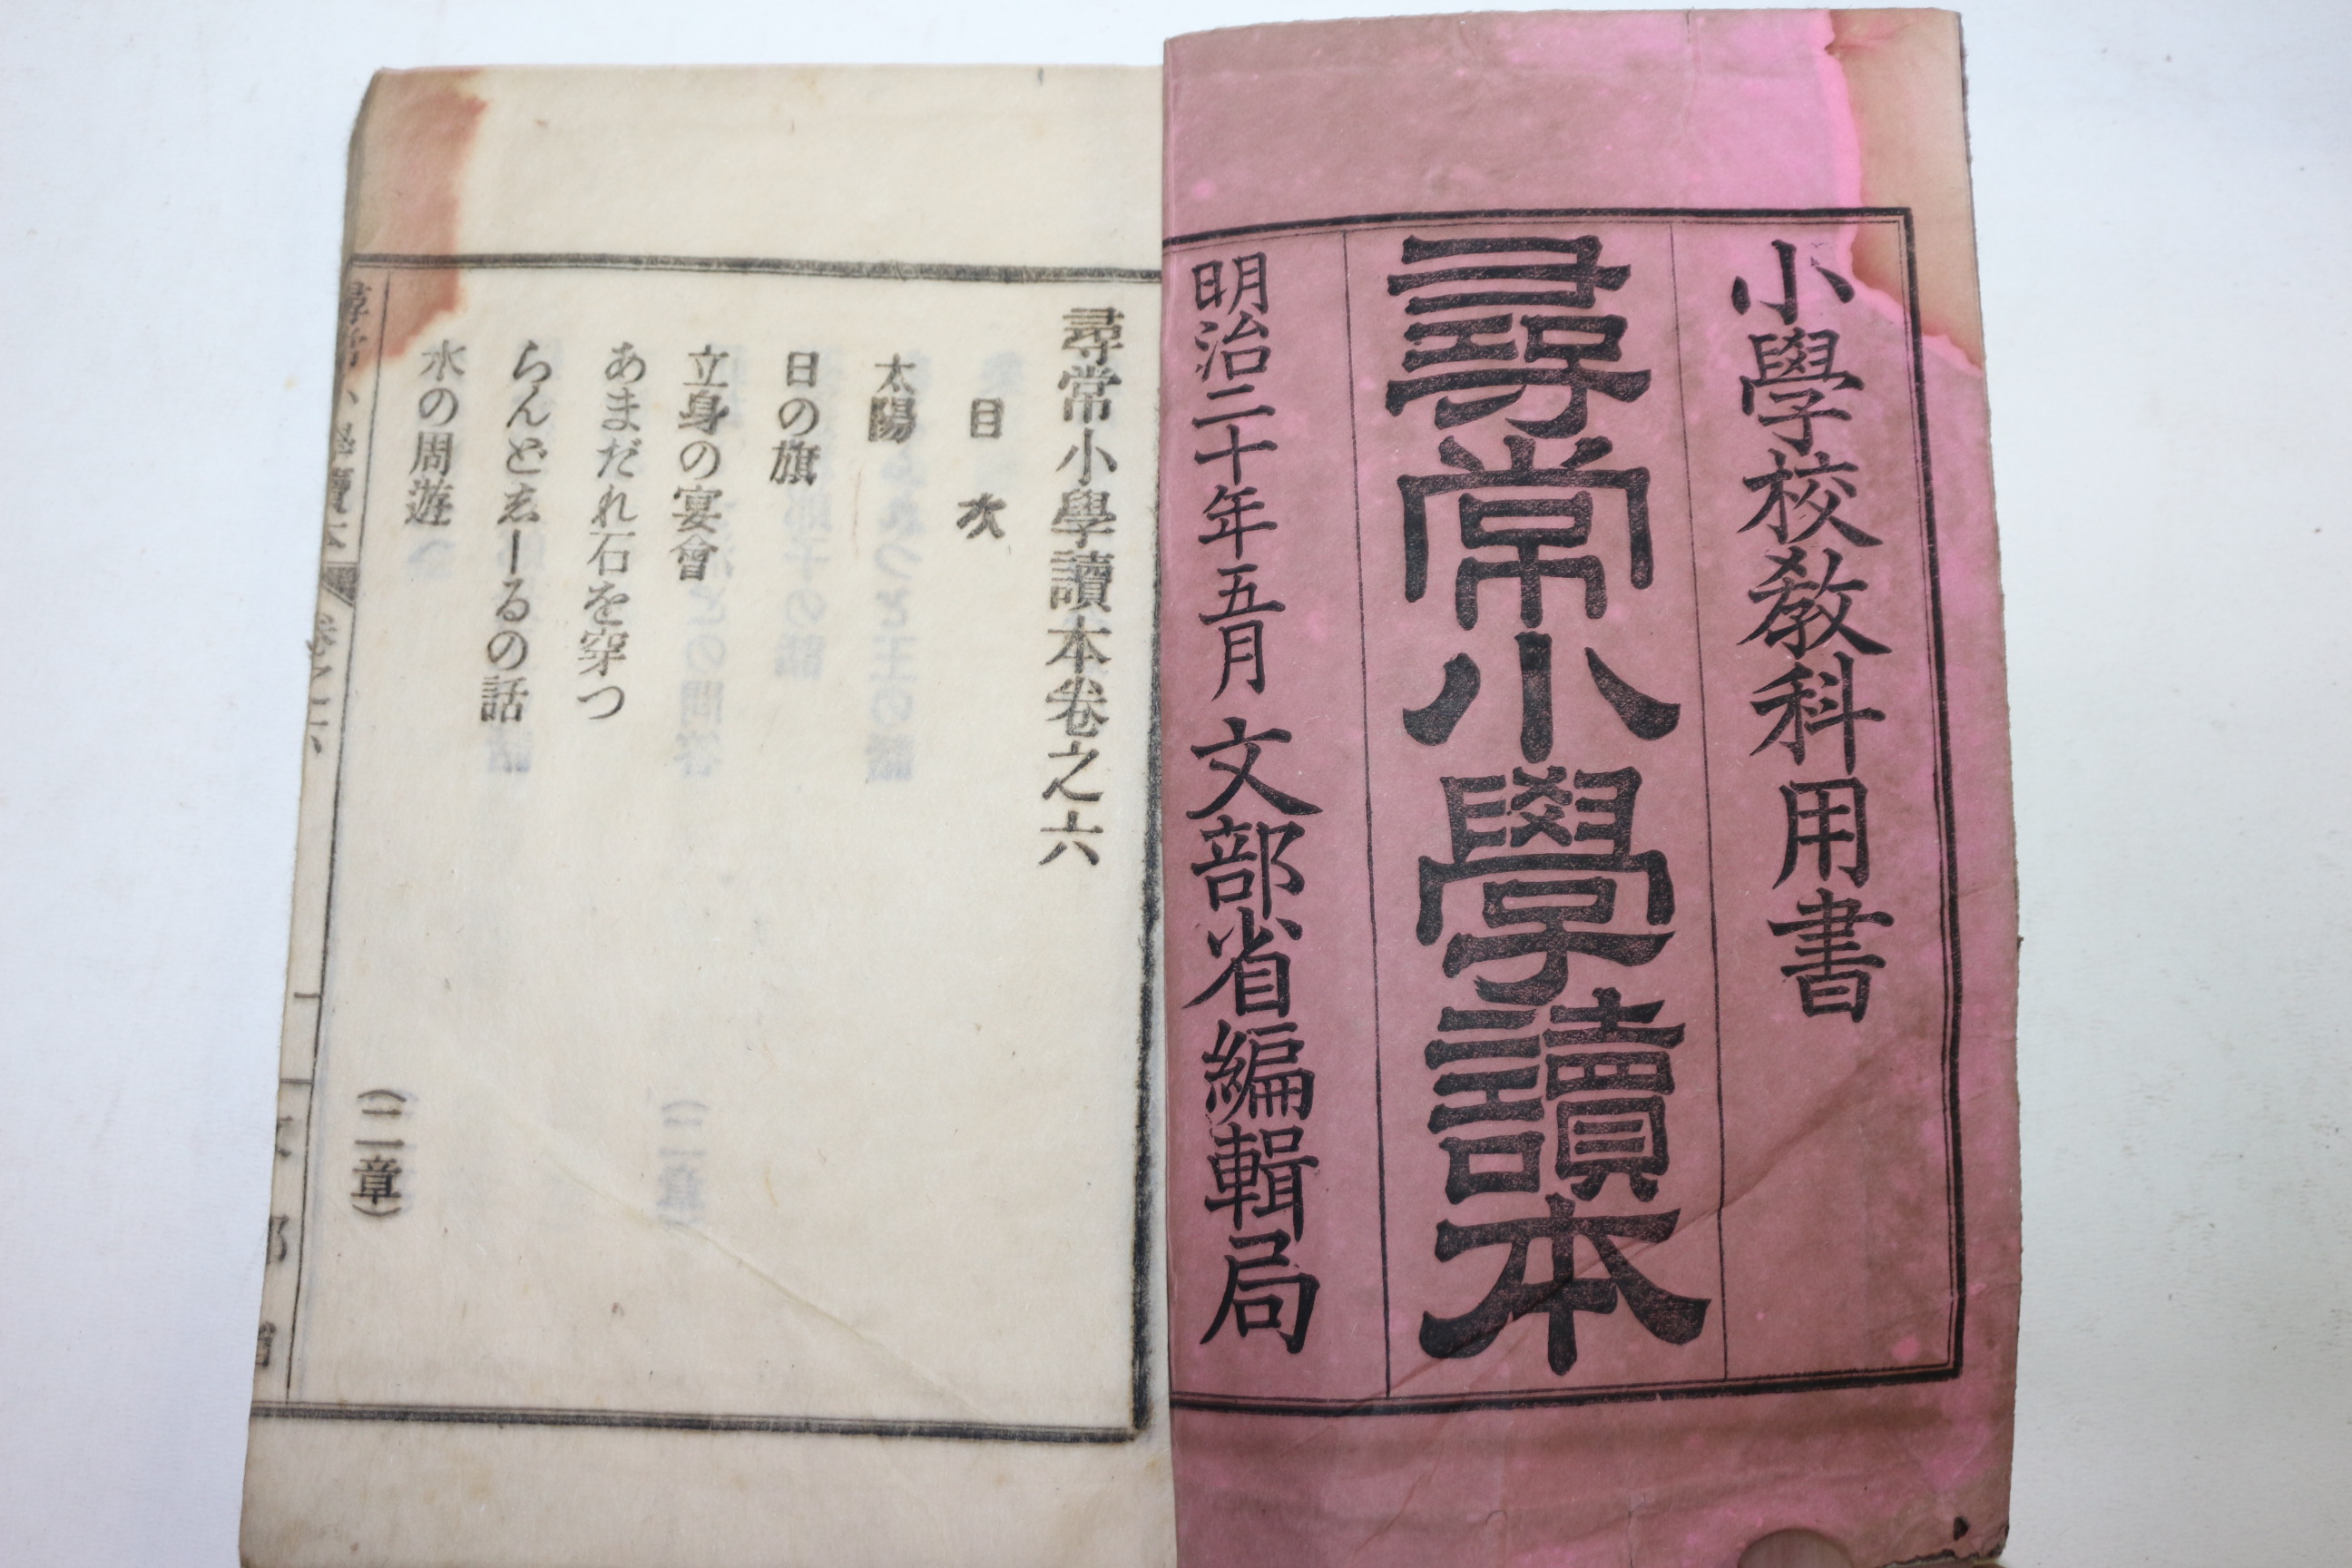 小學校教科用書
尋常小學讀本
明治二十年五月 文部省編輯局
尋常小學讀本卷之六
目次
太陽
日の旗
立身の宴會
あまだれ石を穿つ
らんどゑーるの話
水の周遊
(二章)
尋常小學讀本 卷之六 一 文部省